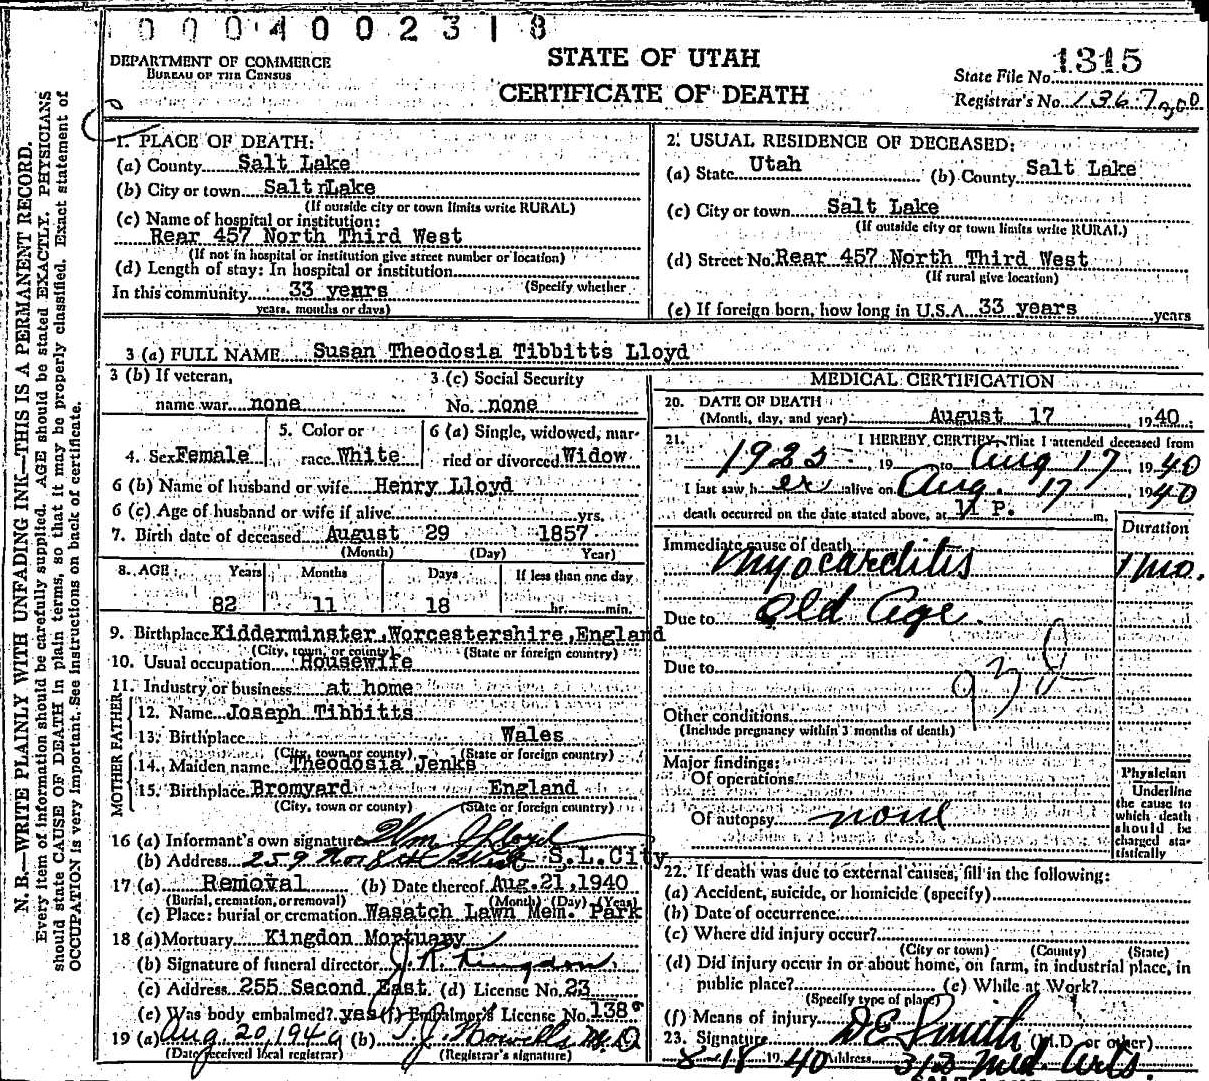 0004002318
DEPARTMENT OF COMMERCE
BUREAU OF THE CENSUS
STATE OF UTAH
CERTIFICATE OF DEATH
State File No. 1315
Registrar's No. 1367
N. B.—WRITE PLAINLY WITH UNFADING INK—THIS IS A PERMANENT RECORD.
Every item of information should be carefully supplied. AGE should be stated EXACTLY. PHYSICIANS
should state CAUSE OF DEATH in plain terms, so that it may be properly classified. Exact statement of
OCCUPATION is very important. See instructions on back of certificate.
1. PLACE OF DEATH:
(a) County Salt Lake
(b) City or town Salt Lake
(If outside city or town limits write RURAL)
(c) Name of hospital or institution:
Rear 457 North Third West
(If not in hospital or institution give street number or location)
(d) Length of stay: In hospital or institution
In this community 33 years (Specify whether
years, months or days)
2. USUAL RESIDENCE OF DECEASED:
(a) State Utah (b) County Salt Lake
(c) City or town Salt Lake
(If outside city or town limits write RURAL)
(d) Street No. Rear 457 North Third West
(If rural give location)
(e) If foreign born, how long in U.S.A. 33 years years
3 (a) FULL NAME Susan Theodosia Tibbitts Lloyd
3 (b) If veteran, 3 (c) Social Security
name war none No. none
4. Sex Female 5. Color or race White 6 (a) Single, widowed, married or divorced Widow
6 (b) Name of husband or wife Henry Lloyd
6 (c) Age of husband or wife if alive yrs.
7. Birth date of deceased August 29 1857
(Month) (Day) Year)
8. AGE: Years Months Days If less than one day
82 11 18 hr. min.
9. Birthplace Kidderminster, Worcestershire, England
(City, town, or county) (State or foreign country)
10. Usual occupation Housewife
11. Industry or business at home
FATHER
12. Name Joseph Tibbitts
13. Birthplace Wales
(City, town or county) (State or foreign country)
MOTHER
14. Maiden name Theodosia Jenks
15. Birthplace Bromyard England
(City, town or county) (State or foreign country)
16 (a) Informant's own signature Wm J Lloyd
(b) Address 259 North West S.L.City
17 (a) Removal (b) Date thereof Aug. 21, 1940
(Burial, cremation, or removal) (Month) (Day) (Year)
(c) Place: burial or cremation Wasatch Lawn Mem. Park
18 (a) Mortuary Kingdon Mortuary
(b) Signature of funeral director J. R. Kingdon
(c) Address 255 Second East (d) License No. 23
(e) Was body embalmed? yes (f) Embalmer's License No. 138
19 (a) Aug 20, 1940 (b) T. J. Howells M.D.
(Date received local registrar) (Registrar's signature)
MEDICAL CERTIFICATION
20. DATE OF DEATH
(Month, day, and year) August 17 1940
21. I HEREBY CERTIFY, That I attended deceased from
1925 19 to Aug 17 1940
I last saw her alive on Aug. 17 1940
death occurred on the date stated above, at 11 P. m.
Duration
Immediate cause of death
Myocarditis 1 mo.
Due to Old Age
Due to
93 D
Other conditions
(Include pregnancy within 3 months of death)
Major findings:
Of operations
Of autopsy none
Physician
Underline
the cause to
which death
should be
charged sta-
tistically
22. If death was due to external causes, fill in the following:
(a) Accident, suicide, or homicide (specify)
(b) Date of occurrence
(c) Where did injury occur?
(City or town) (County) (State)
(d) Did injury occur in or about home, on farm, in industrial place, in
public place? (e) While at Work?
(Specify type of place)
(f) Means of injury
23. Signature D E Smith (M.D. or other)
8-18 1940 Address 313 Med. Arts.